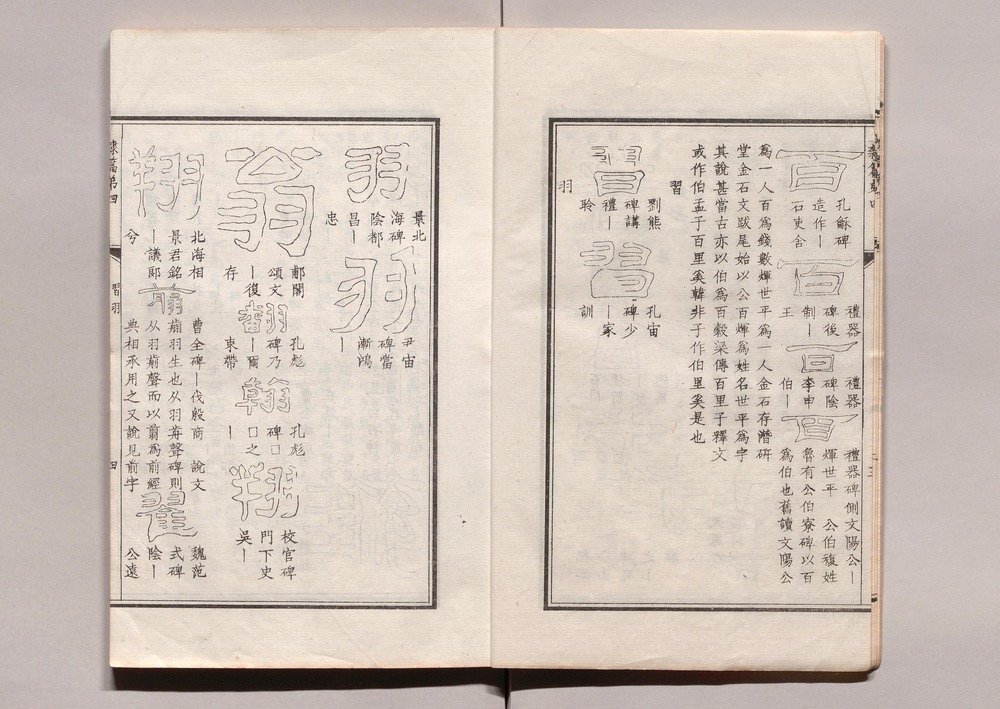 隸篇第四
百
孔龢碑
造作｜
石吏舍
百
禮器
碑後
制｜
王
百
禮器
碑陰
李申
伯｜
百
禮器碑側文陽公｜
煇世平　公伯複姓
魯有公伯寮碑以百
為伯也舊讀文陽公
為一人百為錢數煇世平為一人金石存潛研
堂金石文跋尾始以公百煇為姓名世平為字
其說甚當古亦以伯為百穀梁傳百里子釋文
或作伯孟子百里奚韓非子作伯里奚是也
習
習
劉熊
碑講
禮｜
聆
習
孔宙
碑少
｜家
訓
羽
羽
景北
海碑
陰都
昌｜
忠
羽
尹宙
碑當
漸鴻
｜
翁
郙閣
頌文
｜復
存
翻
孔彪
碑乃
｜爾
束帶
翰
孔彪
碑□
□之
｜
翔
校官碑
門下史
吳｜
翔
北海相
景君銘
｜議郎
兮
翦
曹全碑｜伐殷商　說文
翦羽生也从羽歬聲碑則
从羽前聲而以翦為前經
典相承用之又說見前字
翟
魏范
式碑
陰｜
公遠
隸篇第四
習羽
四